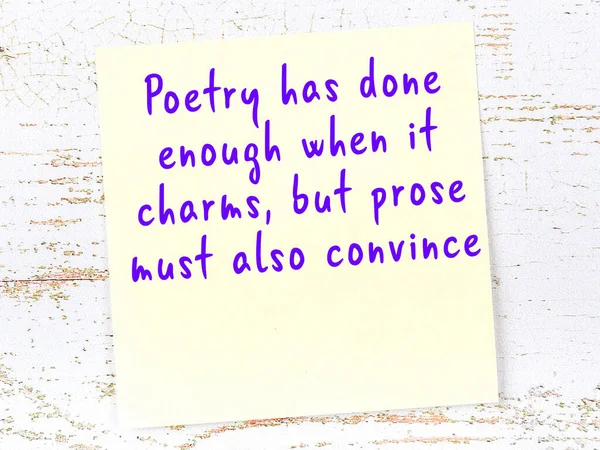 Poetry has done
enough when it
charms, but prose
must also convince